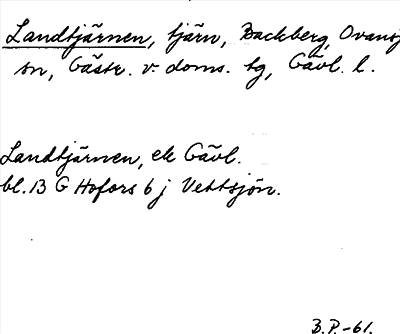 Landtjärnen, tjärn, Backberg, Ovansj
sn, Gästr. v. doms. tg, Gävl. l.
Landtjärnen, ek Gävl.
bl. B G Hofors 6 j Vettsjön.
B.P.-61.